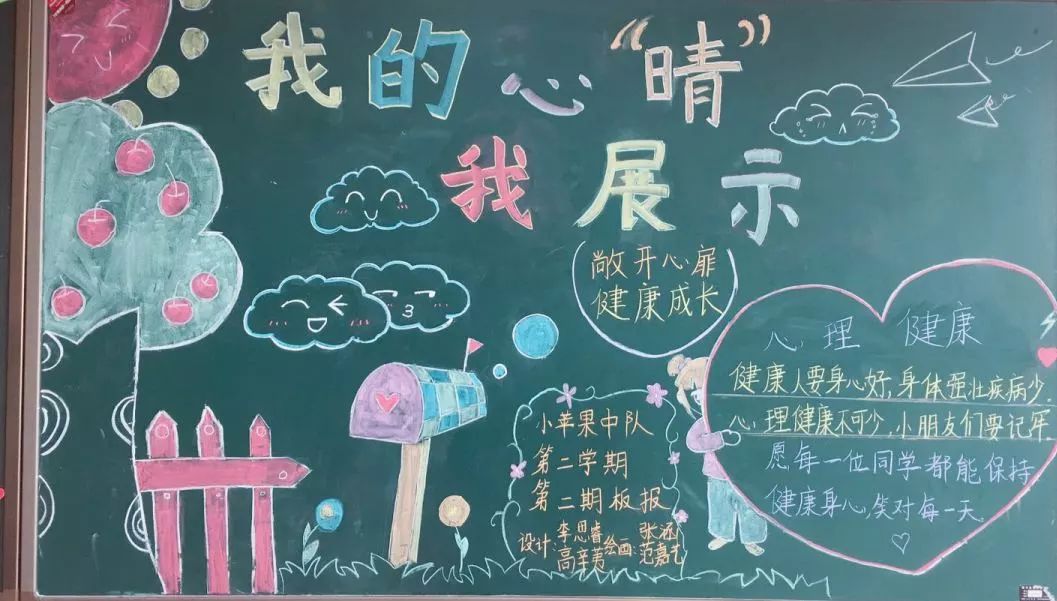 我的心“晴”
我展示
敞开心扉
健康成长
心理健康
健康人要身心好,身体强壮疾病少.
心理健康不可少,小朋友们要记牢.
愿每一位同学都能保持
健康身心,笑对每一天.
小苹果中队
第二学期
第二期板报
设计:李思睿 绘画:张涵
高辛芳 范嘉艺